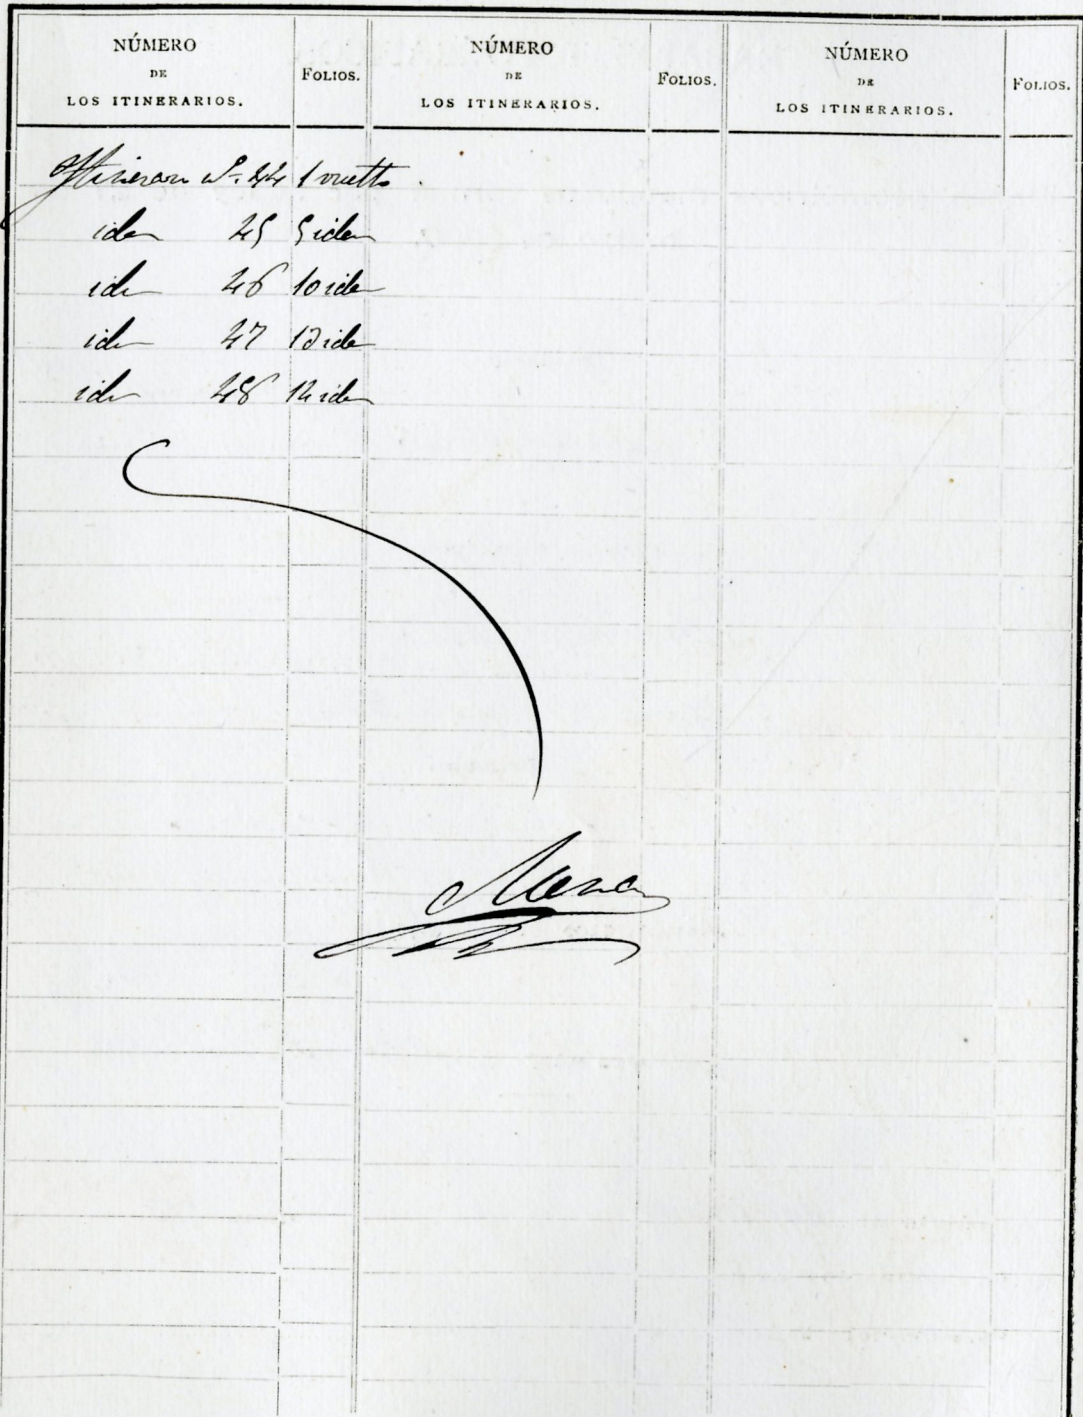 NÚMERO DE LOS ITINERARIOS. FOLIOS. NÚMERO DE LOS ITINERARIOS. FOLIOS. NÚMERO DE LOS ITINERARIOS. FOLIOS.
Itinerario Nº. 44 1 vuelto
idem 45 5 idem
idem 46 10 idem
idem 47 idem
idem 48 idem